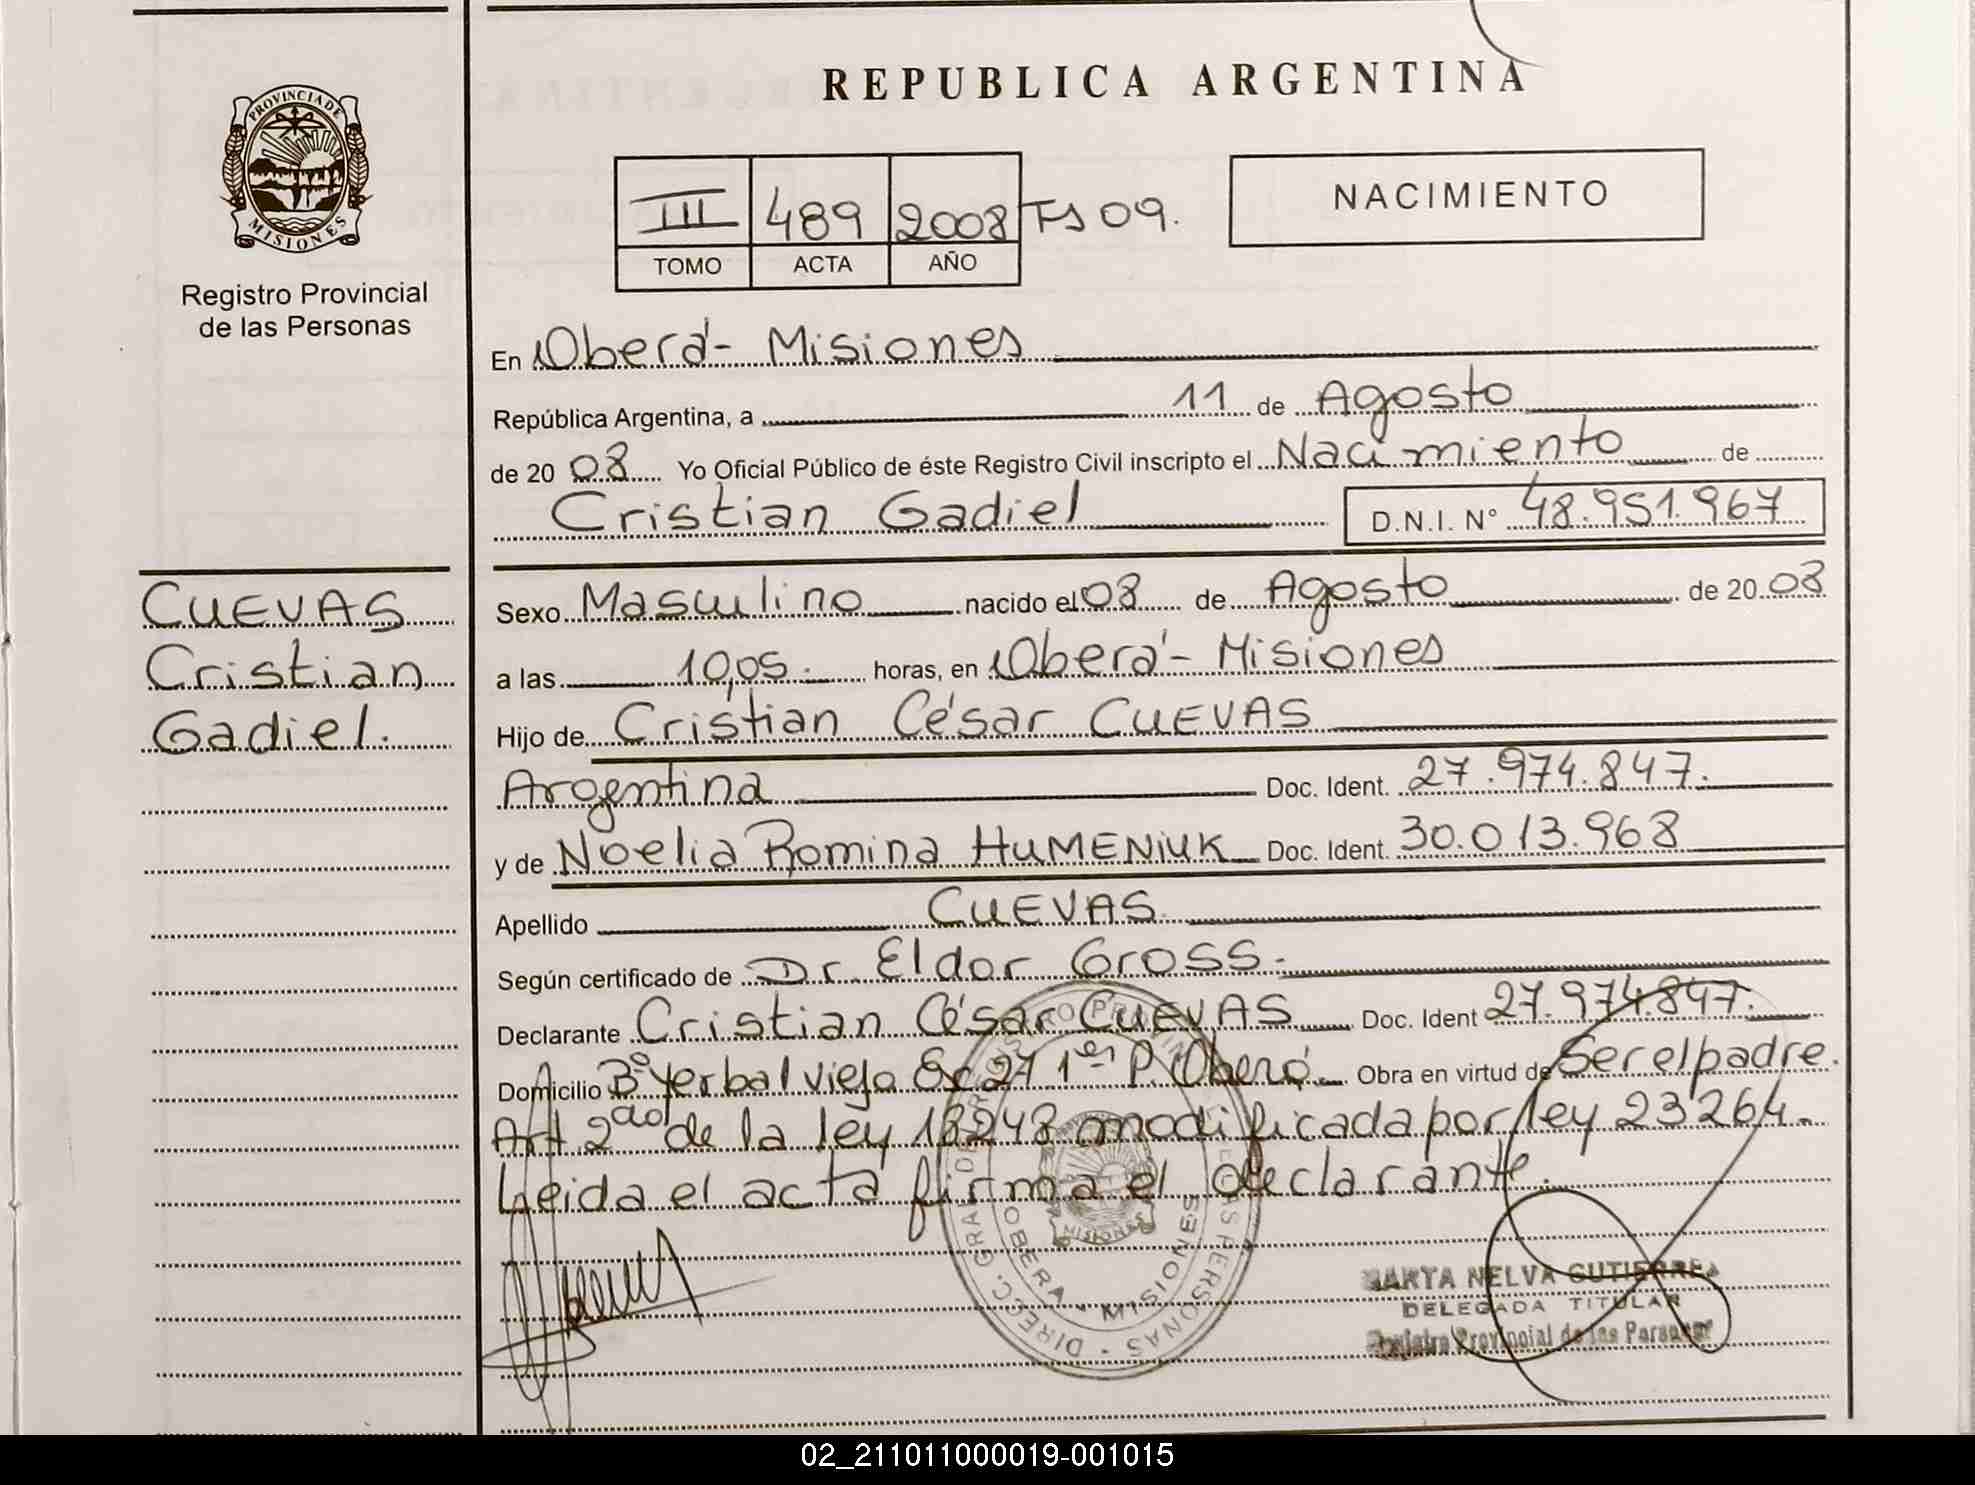 REPUBLICA ARGENTINA
PROVINCIA DE
MISIONES
Registro Provincial
de las Personas
III 489 2008 Fs 09.
TOMO ACTA AÑO
NACIMIENTO
En Oberá - Misiones
República Argentina, a 11 de Agosto
de 20 08 Yo Oficial Público de éste Registro Civil inscripto el Nacimiento de
Cristian Gadiel D.N.I. N° 48.951.967
CUEVAS
Cristian
Gadiel.
Sexo Masculino nacido el 08 de Agosto de 20 08
a las 10,05. horas, en Oberá - Misiones
Hijo de Cristian César CUEVAS
Argentina Doc. Ident. 27.974.847.
y de Noelia Romina HUMENIUK Doc. Ident. 30.013.968
Apellido CUEVAS
Según certificado de Dr. Eldor Gross.
Declarante Cristian César CUEVAS Doc. Ident 27.974.847.
Domicilio B° Yerbal viejo Sc 27 1er P. Oberá. Obra en virtud de Ser el padre.
Art 2do de la ley 18248 modificada por ley 23264.
Leida el acta firma el declarante.
OBERA - MISIONES
MISIONES
MARTA NELVA GUTIERREZ
DELEGADA TITULAR
Registro Provincial de las Personas
02_211011000019-001015